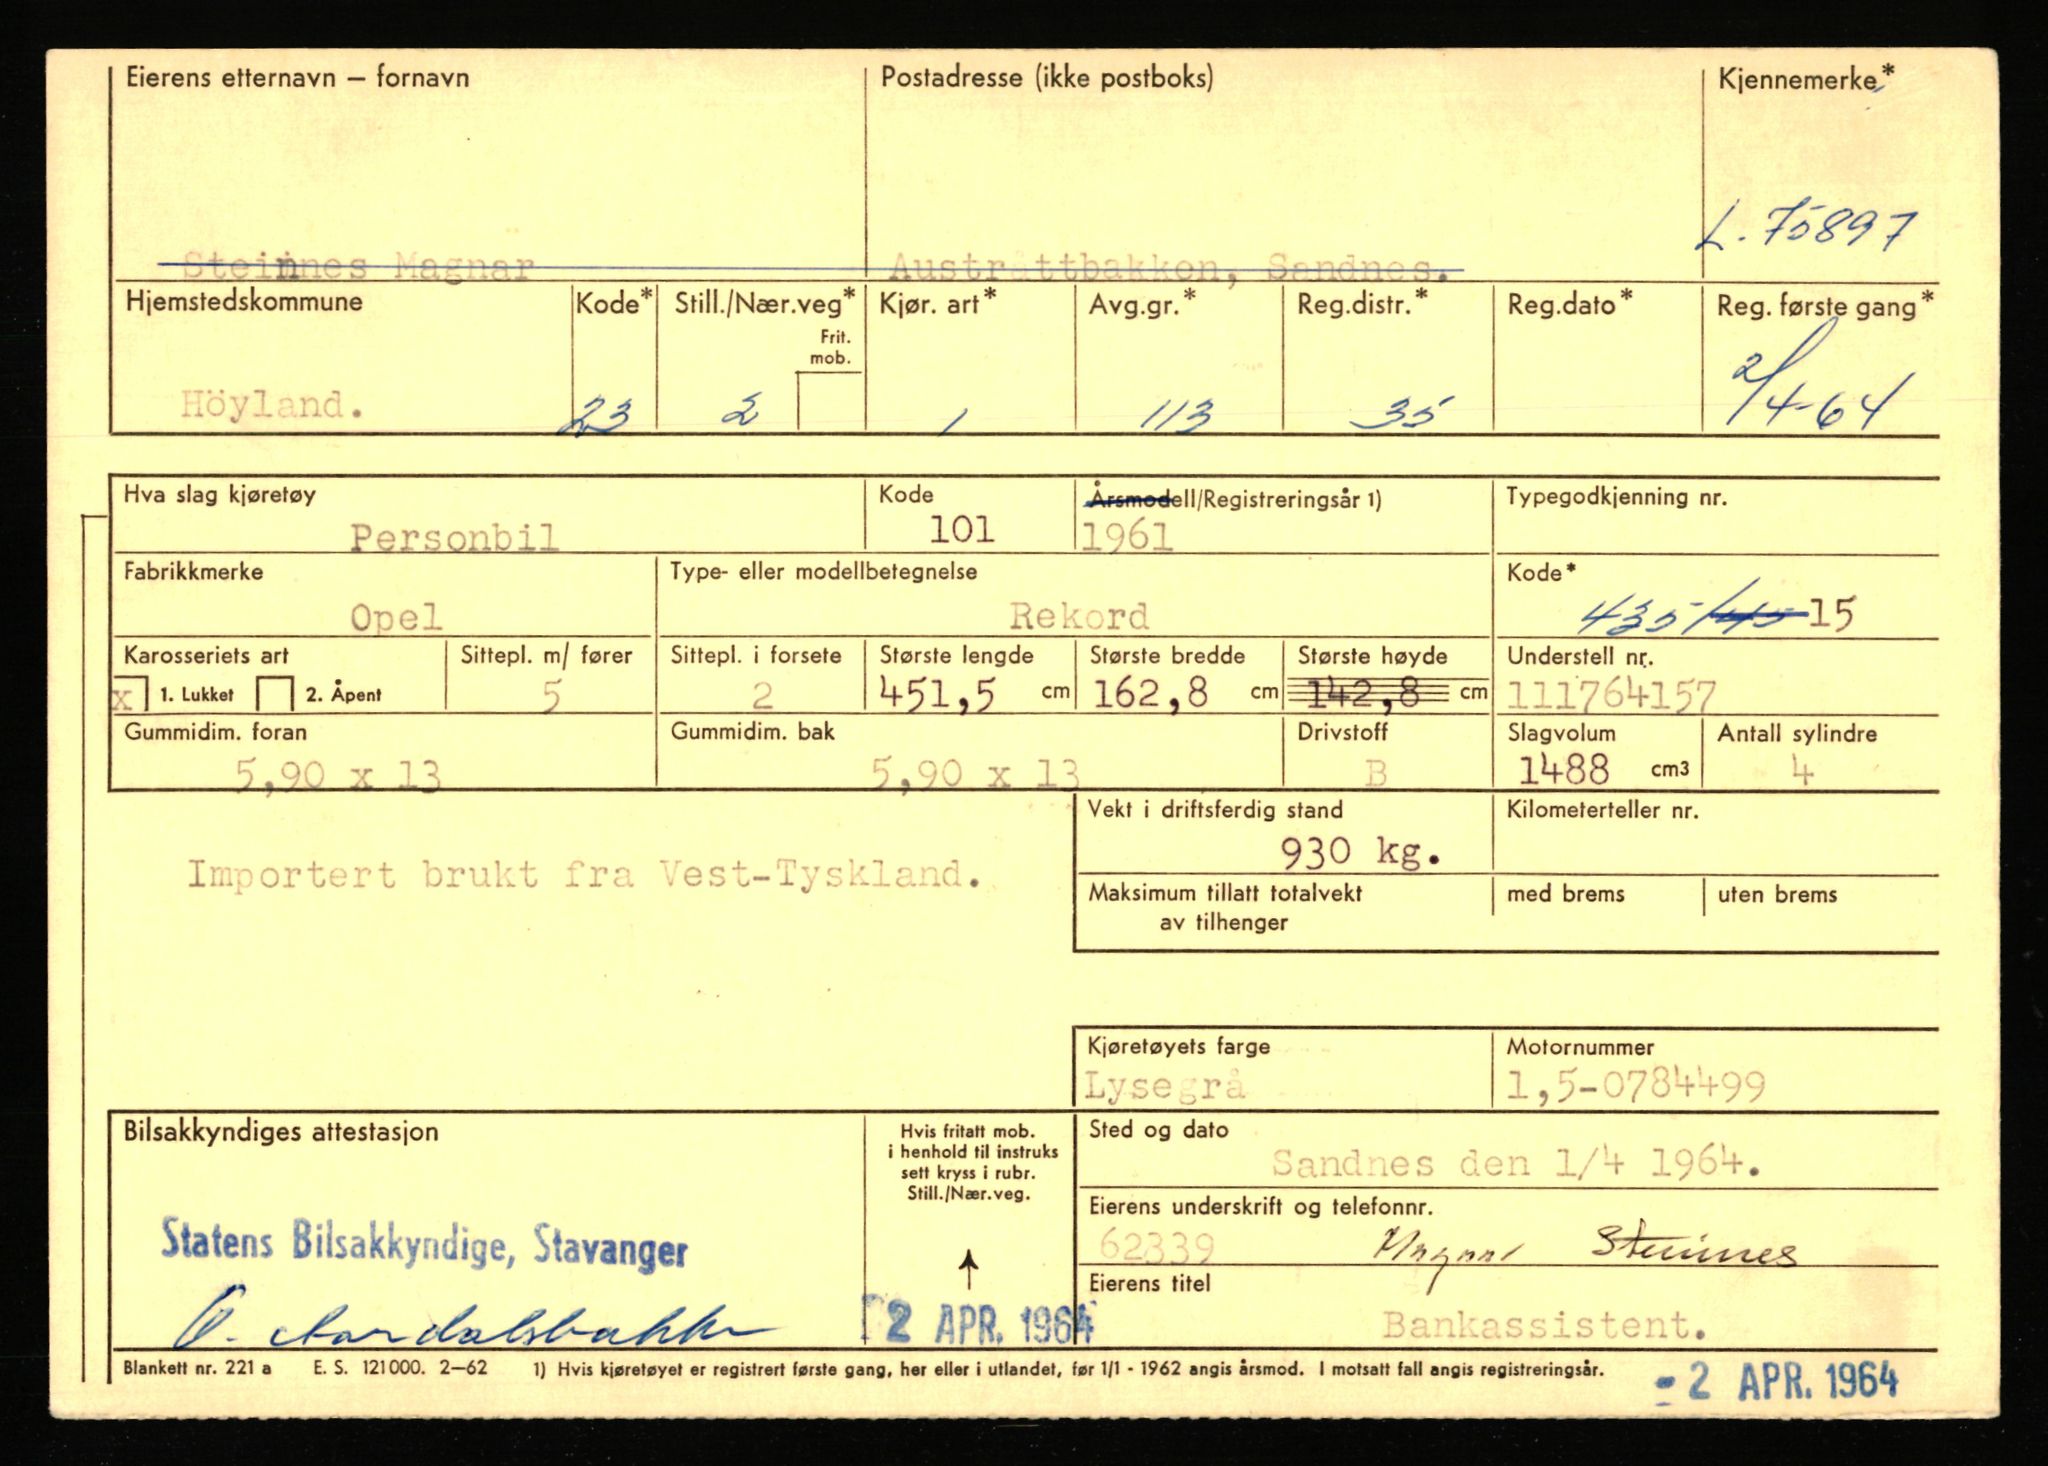 Eierens etternavn – fornavn Postadresse (ikke postboks) Kjennemerke*
L. 75897
Steinnes Magnar Austråttbakken, Sandnes.
Hjemstedskommune Kode* Still./Nær.veg* Kjør. art* Avg.gr.* Reg.distr.* Reg.dato* Reg. første gang*
Frit.
mob.
Höyland. 23 2 1 113 35 2/4-64
Hva slag kjøretøy Kode Årsmodell/Registreringsår 1) Typegodkjenning nr.
Personbil 101 1961
Fabrikkmerke Type- eller modellbetegnelse Kode*
Opel Rekord 435/45 15
Karosseriets art Sittepl. m/ fører Sittepl. i forsete Største lengde Største bredde Største høyde Understell nr.
x 1. Lukket 2. Åpent 5 2 451,5 cm 162,8 cm 142,8 cm 111764157
Gummidim. foran Gummidim. bak Drivstoff Slagvolum Antall sylindre
5,90 x 13 5,90 x 13 B 1488 cm3 4
Vekt i driftsferdig stand Kilometerteller nr.
930 kg.
Importert brukt fra Vest-Tyskland.
Maksimum tillatt totalvekt med brems uten brems
av tilhenger
Kjøretøyets farge Motornummer
Lysegrå 1,5-0784499
Bilsakkyndiges attestasjon Hvis fritatt mob. Sted og dato
i henhold til instruks
sett kryss i rubr.
Still./Nær.veg.
Sandnes den 1/4 1964.
Eierens underskrift og telefonnr.
Statens Bilsakkyndige, Stavanger
62339 Magnar Steinnes
Eierens titel
O. Aardalsbakke 2 APR. 1964 Bankassistent.
Blankett nr. 221 a E. S. 121000. 2–62 1) Hvis kjøretøyet er registrert første gang, her eller i utlandet, før 1/1 - 1962 angis årsmod. I motsatt fall angis registreringsår.
- 2 APR. 1964